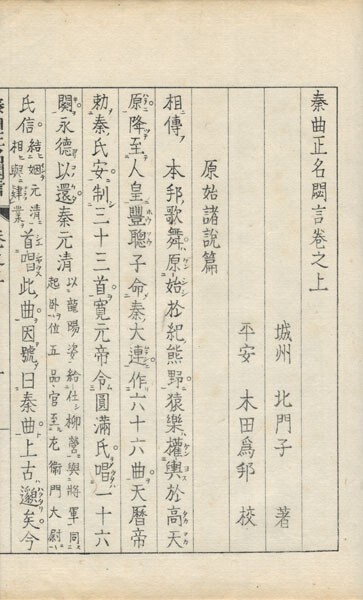 秦曲正名閟言卷之上
城州 北門子 著
平安 木田爲邦 校
原始諸説篇
相傳本邦歌舞原始於紀熊野猿樂權輿於高天
原降至人皇豐聰子命秦大連作六十六曲天曆帝
勅秦氏安制三十三首寬元帝令圓滿氏唱一十六
闋永德以還秦元清以龍陽姿給仕柳營與將軍同
起臥位五品官至左衛門大尉
氏信結姻元清相與肆業首唱此曲因號曰秦曲上古邈矣今